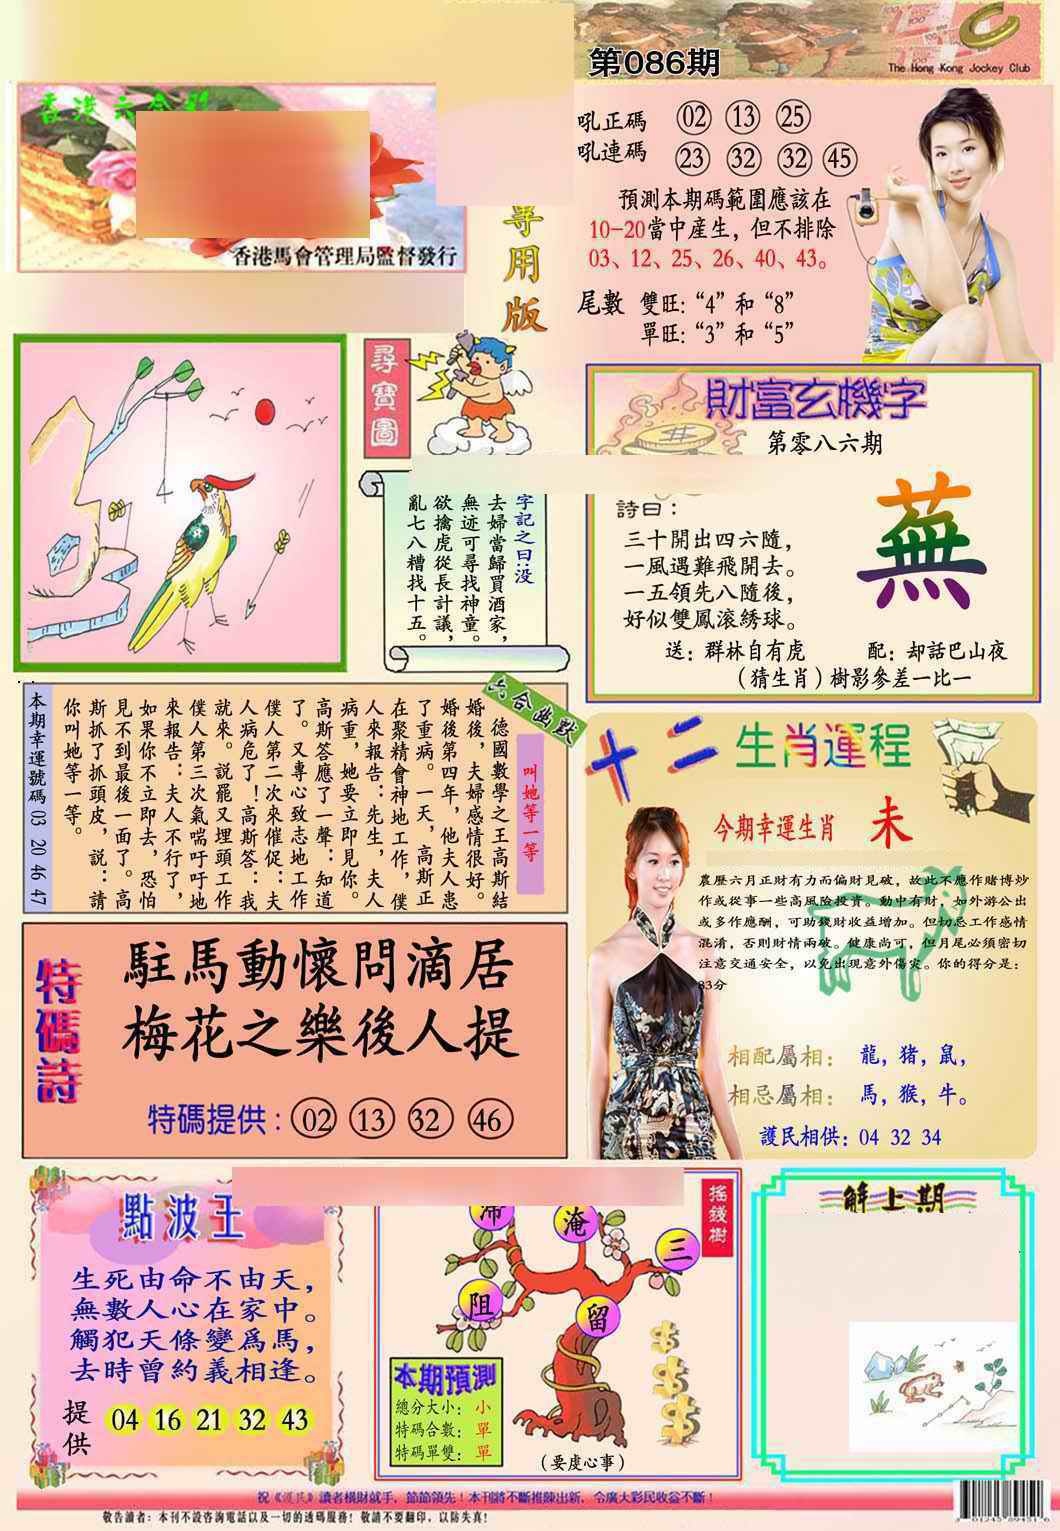 第086期
The Hong Kong Jockey Club
香港馬會管理局監督發行
專用版
吼正碼 02 13 25
吼連碼 23 32 32 45
預測本期碼範圍應該在
10-20當中産生，但不排除
03、12、25、26、40、43。
尾數 雙旺：“4”和“8”
單旺：“3”和“5”
尋寶圖
字記之日：没
去婦當歸買酒家，
無迹可尋找神童。
欲擒虎從長計議，
亂七八糟找十五。
財富玄機字
第零八六期
詩曰：
三十開出四六隨，
一風遇難飛開去。
一五領先八隨後，
好似雙鳳滚綉球。
蕪
送：群林自有虎 配：却話巴山夜
（猜生肖）樹影參差一比一
本期幸運號碼 03 20 46 47
六合幽默
叫她等一等
德國數學之王高斯結
婚後，夫婦感情很好。
婚後第四年，他夫人患
了重病。一天，高斯正
在聚精會神地工作，僕
人來報告：先生，夫人
病重，她要立即見你。
高斯答應了一聲：知道
了。又專心致志地工作
僕人第二次來催促：夫
人病危了！高斯答：我
就來。説罷又埋頭工作
僕人第三次氣喘吁吁地
來報告：夫人不行了，
如果你不立即去，恐怕
見不到最後一面了。高
斯抓了抓頭皮，説：請
你叫她等一等。
十二生肖運程
今期幸運生肖 未
農歷六月正財有力而偏財見破，故此不應作賭博炒
作或從事一些高風險投資。動中有財，如外游公出
或多作應酬，可助錢財收益增加。但切忌工作感情
混淆，否則財情兩破。健康尚可，但月尾必須密切
注意交通安全，以免出現意外傷灾。你的得分是：
83分
相配屬相：龍，猪，鼠，
相忌屬相：馬，猴，牛。
護民相供：04 32 34
特碼詩
駐馬動懷問滴居
梅花之樂後人提
特碼提供：02 13 32 46
點波王
生死由命不由天，
無數人心在家中。
觸犯天條變爲馬，
去時曾約義相逢。
提供 04 16 21 32 43
搖錢樹
滯
淹
三
阻
留
本期預測
總分大小：小
特碼合數：單
特碼單雙：單
（要虔心事）
解上期
祝《護民》讀者横財就手，節節領先！本刊將不斷推陳出新，令廣大彩民收益不斷！
敬告讀者：本刊不設咨詢電話以及一切的透碼服務！敬請不要翻印，以防失真！